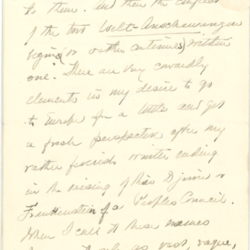 to them. And then the conflict
of the two Welt-Anschauungen
begins (or rather continues) within
one. There are very cowardly
elements in my desire to go
to Europe for a little and get
a fresh perspective after my
rather feverish winter ending
in the missing of this
Frankenstein of a Peoples Council.
When I call it these names
as most, vague,